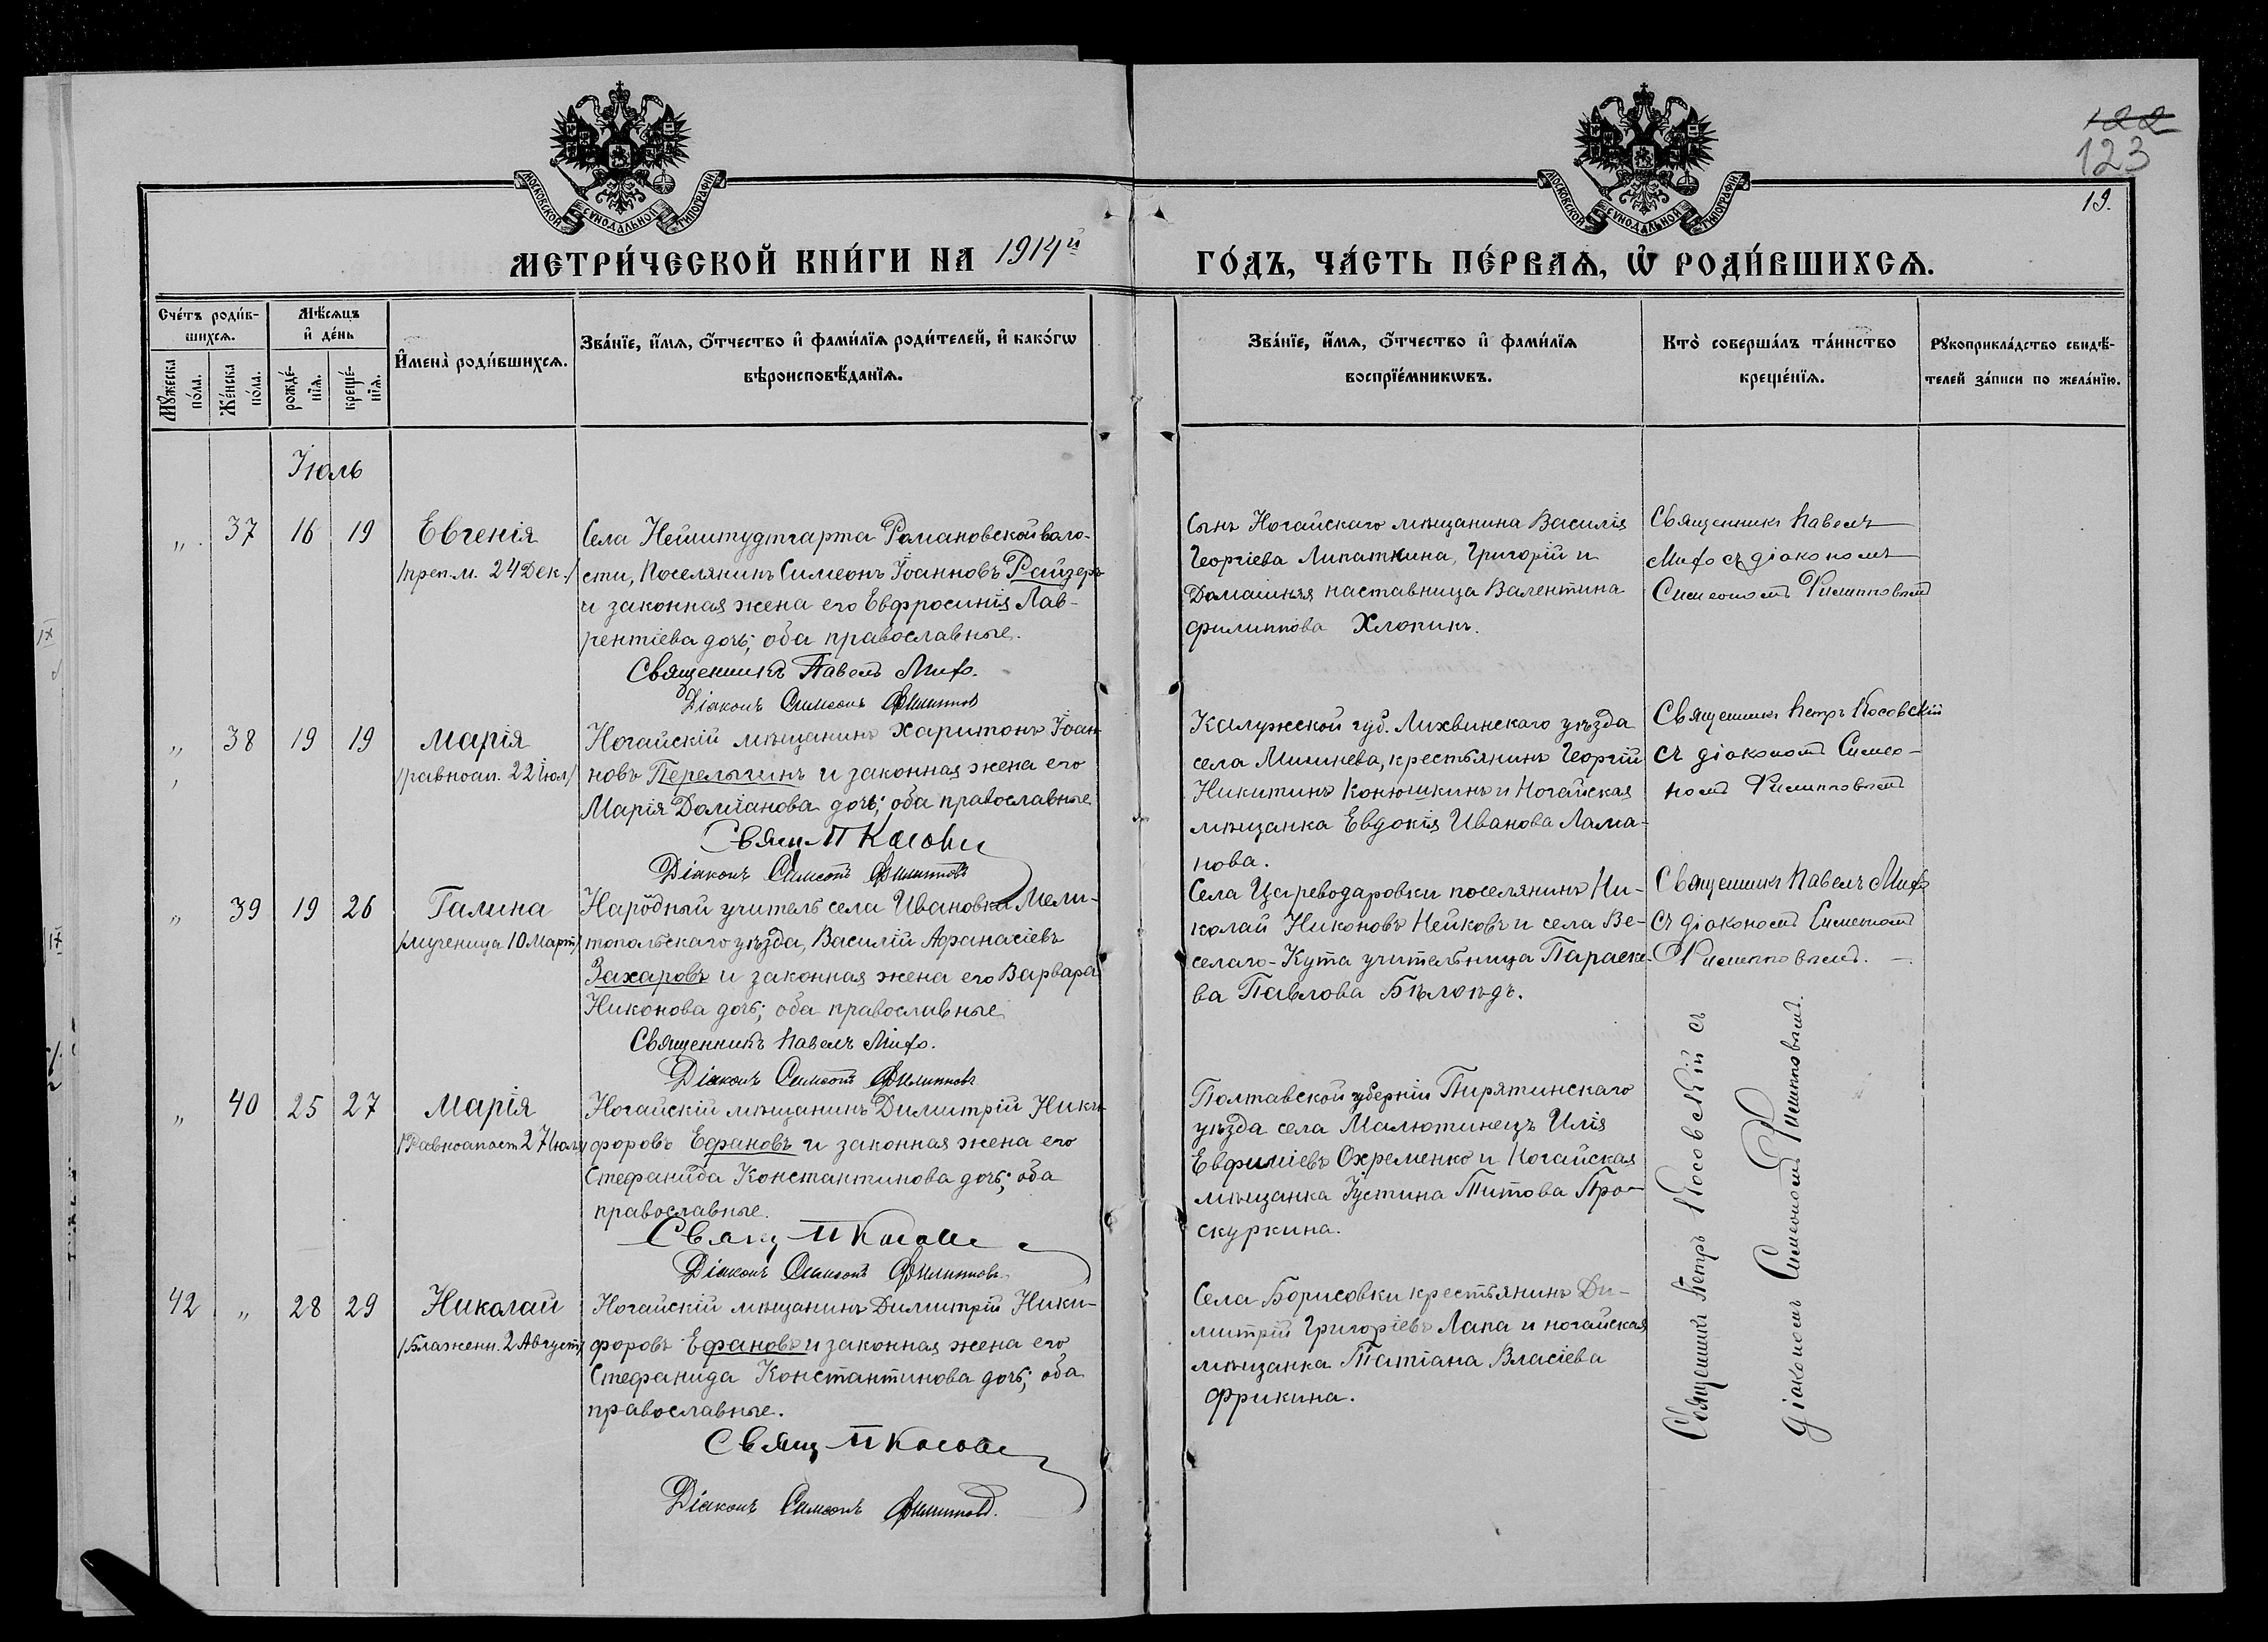 122
123
19.
МОСКОВСКОЙ СѴНОДАЛЬНОЙ ТИПОГРАФІИ
МОСКОВСКОЙ СѴНОДАЛЬНОЙ ТИПОГРАФІИ
МЕТРИ́ЧЕСКОЙ КНИ́ГИ НА 1914й ГО́ДЪ, ЧА́СТЬ ПЕ́РВАѦ, Ѡ҆ РОДИ́ВШИХСѦ.
Сче́тъ роди́в-
шихсѧ.
Мꙋ́жеска по́ла.
Же́нска по́ла.
Мѣ́сѧцъ
и҆ де́нь
рожде́-
нїѧ.
креще́-
нїѧ.
И҆мена̀ роди́вшихсѧ.
Зва́нїе, и҆́мѧ, ѻ҆́тчество и҆ фами́лїѧ роди́телей, и҆ како́гѡ
вѣроисповѣ́данїѧ.
Зва́нїе, и҆́мѧ, ѻ҆́тчество и҆ фами́лїѧ
воспрїе́мникѡвъ.
Кто̀ соверша́лъ та́инство
креще́нїѧ.
Рꙋкоприкла́дство свидѣ́-
телей за́писи по жела́нїю.
Іюль
„ 37 16 19 Евгенія
/преп. м. 24 Дек./
Села Нейштудтгарта Романовской воло-
сти, поселянинъ Симеонъ Іоанновъ Райзеръ
и законная жена его Евфросинія Лав-
рентіева дочь; оба православные.
Священникъ Павелъ Михо.
Діаконъ Симеонъ Филипповъ
Сынъ Ногайскаго мѣщанина Василія
Георгіева Липаткина, Григорій и
Домашняя наставница Валентина
Филиппова Хлопинъ.
Священникъ Павелъ
Михо съ діакономъ
Симеономъ Филипповымъ
„ 38 19 19 Марія
/равноап. 22 Іюл/
Ногайскій мѣщанинъ Харитонъ Іоан-
новъ Перелыгинъ и законная жена его
Марія Доміанова дочь; оба православные
Свящ. П Косовс
Діаконъ Симеонъ Филипповъ
Калужской губ. Лихвинскаго уѣзда
села Мишнева, крестьянинъ Георгій
Никитинъ Конюшкинъ и Ногайская
мѣщанка Евдокія Иванова Лама-
нова.
Священникъ Петръ Косовскій
съ діакономъ Симео-
номъ Филипповымъ
„ 39 19 26 Галина
/мученица 10 Март/
Народный учитель села Ивановка Мели-
топольскаго уѣзда, Василій Афанасіевъ
Захаровъ и законная жена его Варвара
Никонова дочь; оба православные
Священникъ Павелъ Михо.
Діаконъ Симеонъ Филипповъ
Села Цареводаровки поселянинъ Ни-
колай Никоновъ Нейковъ и села Ве-
селаго-Кута учительница Параске-
ва Павлова Бѣлоѣдъ.
Священникъ Павелъ Михо
съ діакономъ Симеономъ
Филипповымъ.
„ 40 25 27 Марія
/Равноапост 27 Іюля/
Ногайскій мѣщанинъ Димитрій Ники-
форовъ Ефановъ и законная жена его
Стефанида Константинова дочь; оба
православные.
Свящ П Косовс
Діаконъ Симеонъ Филипповъ
Полтавской губерніи Пирятинскаго
уѣзда села Малютинецъ Илія
Евфиміевъ Охременко и Ногайская
мѣщанка Іустина Титова Про-
скуркина.
42 „ 28 29 Николай
/Блаженн. 2 Август/
Ногайскій мѣщанинъ Димитрій Ники-
форовъ Ефановъ и законная жена его
Стефанида Константинова дочь; оба
православные.
Свящ П Косовс
Діаконъ Симеонъ Филипповъ.
Села Борисовки крестьянинъ Ди-
митрій Григоріевъ Лапа и ногайская
мѣщанка Татіана Власіева
Фрикина.
Священникъ Петръ Косовскій съ
діакономъ Симеономъ Филипповымъ.